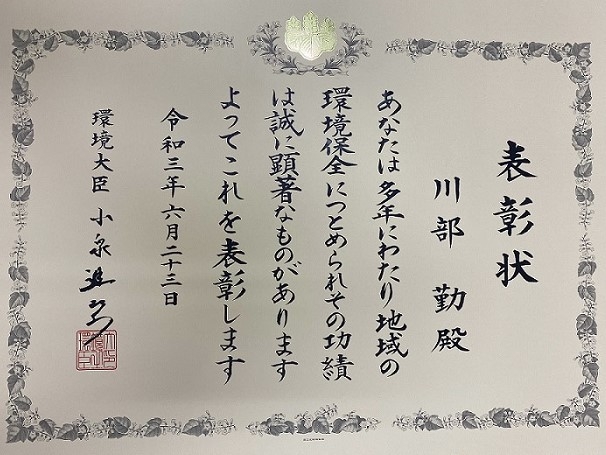 表彰状
川部 勤殿
あなたは多年にわたり地域の
環境保全につとめられその功績
は誠に顕著なものがあります
よってこれを表彰します
令和三年六月二十三日
環境大臣 小泉進次郎